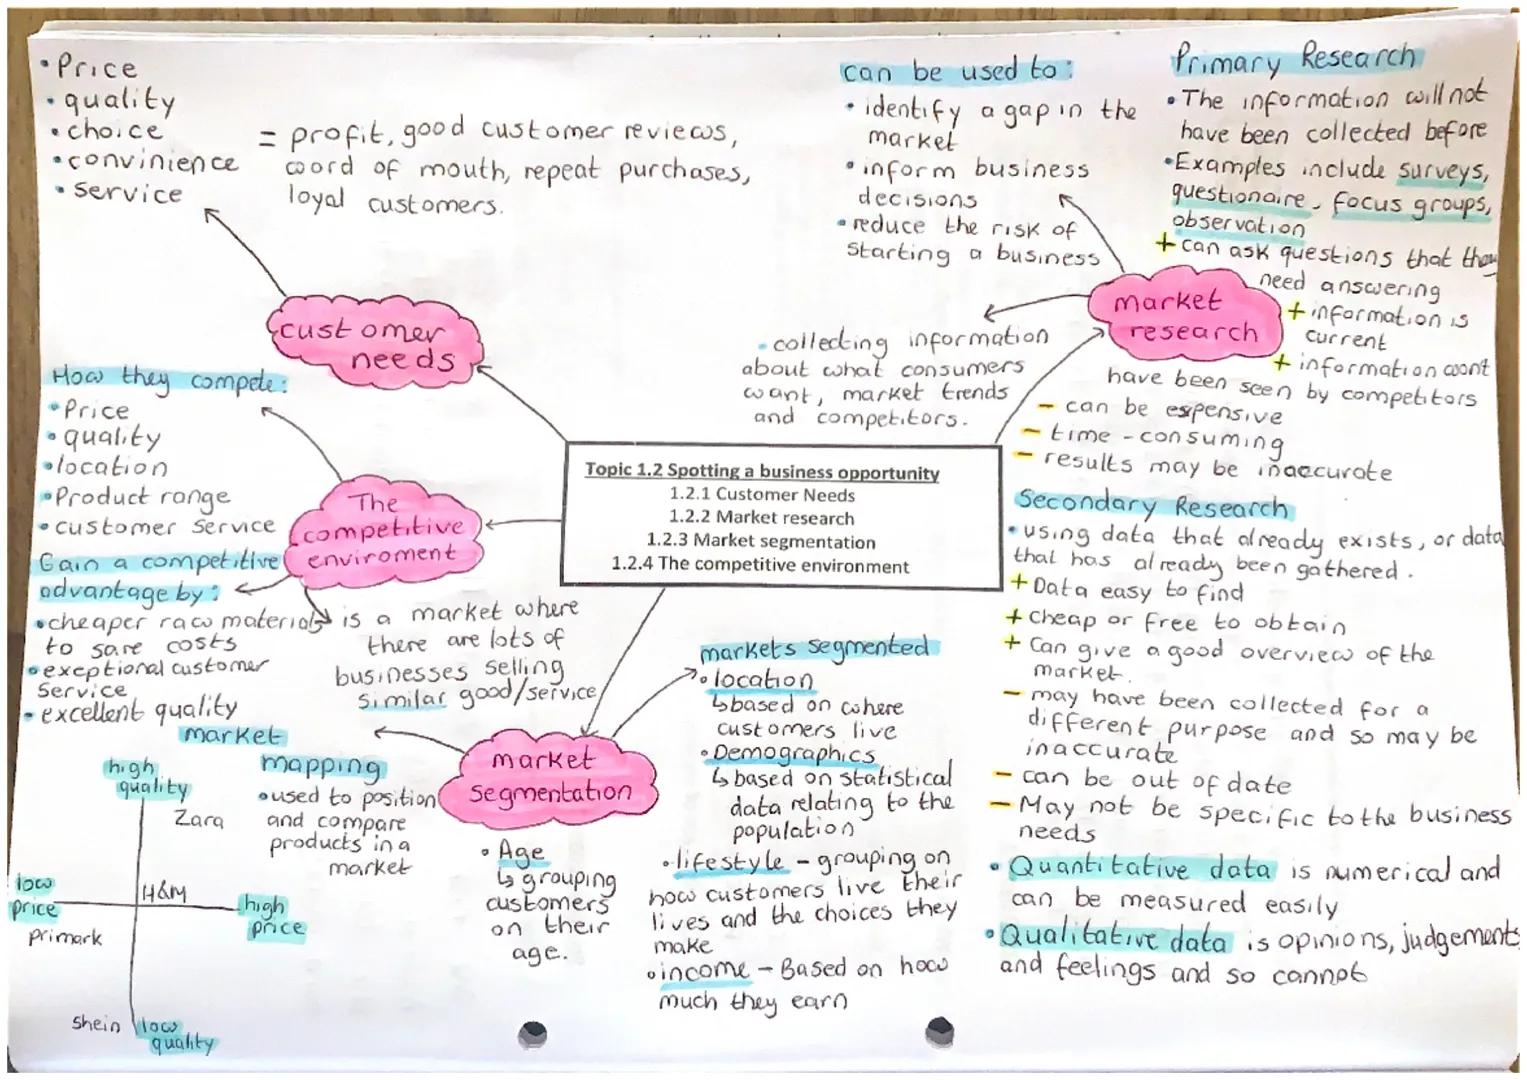 • Price
• quality
• choice
• convinience
• service
= profit, good customer reviews,
word of mouth, repeat purchases,
loyal customers.
customer
needs
can be used to:
• identify a gap in the
market
• inform business
decisions
• reduce the risk of
starting a business
Primary Research
• The information will not
have been collected before
• Examples include surveys,
questionaire, focus groups,
observation
+ can ask questions that they
need answering
+ information is
current
+ information wont
have been seen by competitors
- can be expensive
- time-consuming
- results may be inaccurate
market
research
• collecting information
about what consumers
want, market trends
and competitors.
Topic 1.2 Spotting a business opportunity
1.2.1 Customer Needs
1.2.2 Market research
1.2.3 Market segmentation
1.2.4 The competitive environment
How they compete:
• Price
• quality
• location
• Product range
• customer service
The
competitive
enviroment
Gain a competitive
advantage by:
• cheaper raw materials
to save costs
• exeptional customer
service
• excellent quality
is a market where
there are lots of
businesses selling
similar good/service
Secondary Research
• using data that already exists, or data
that has already been gathered.
+ Data easy to find
+ Cheap or free to obtain
+ Can give a good overview of the
market.
- may have been collected for a
different purpose and so may be
inaccurate
- can be out of date
- May not be specific to the business
needs
• Quantitative data is numerical and
can be measured easily
• Qualitative data is opinions, judgements
and feelings and so cannot
market
segmentation
markets segmented
• location
↳ based on where
customers live
• Demographics
↳ based on statistical
data relating to the
population
• lifestyle - grouping on
how customers live their
lives and the choices they
make
• income - Based on how
much they earn
• Age
↳ grouping
customers
on their
age.
market
mapping
• used to position
and compare
products in a
market
high
quality
Zara
low
price
H&M
high
price
primark
shein
low
quality